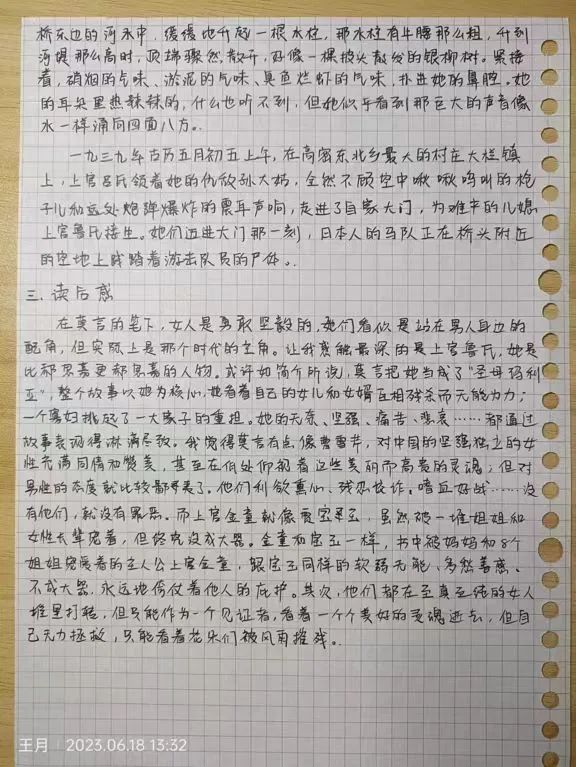 桥东边的河水中，缓缓地升起一根水柱，那水柱有牛腰那么粗，升到
河堤那么高时，顶端骤然散开，好像一棵披头散发的银柳树。紧接
着，硝烟的气味、淤泥的气味、臭鱼烂虾的气味，扑进她的鼻腔。她
的耳朵里热辣辣的，什么也听不到，但她似乎看到那巨大的声音像
水一样涌向四面八方。
一九三九年古历五月初五上午，在高密东北乡最大的村庄大栏镇
上，上官吕氏领着她的仇敌孙大姑，全然不顾空中啾啾鸣叫的枪
子儿和远处炮弹爆炸的震耳声响，走进了自家大门，为难产的儿媳
上官鲁氏接生。她们迈进大门那一刻，日本人的马队正在桥头附近
的空地上践踏着游击队员的尸体。
三、读后感
在莫言的笔下，女人是勇敢坚毅的，她们看似是站在男人身边的
配角，但实际上是那个时代的主角。让我感触最深的是上官鲁氏，她是
比祥恶毒更祥恶毒的人物。或许如简介所说，莫言把她当成了“圣母玛利
亚”，整个故事以她为核心，她看着自己的女儿和女婿互相残杀而无能为力；
一个寡妇挑起了一大家子的重担。她的无奈、坚强、痛苦、悲哀……都通过
故事表现得淋漓尽致。我觉得莫言有点像曹雪芹，对中国的坚强独立的女
性充满同情和赞美，甚至在低处仰视着这些美丽而高贵的灵魂；但对
男性的态度就比较鄙夷了。他们利欲熏心、残忍狡诈。嗜血好战……没
有他们，就没有罪恶。而上官金童就像贾宝玉，虽然被一堆姐姐和
女性长辈宠着，但终究没成大器。金童和宝玉一样，书中被妈妈和8个
姐姐宠爱着的主人公上官金童，跟宝玉同样的软弱无能、多愁善感、
不成大器，永远地倚仗着他人的庇护。其次，他们都在至真至纯的女人
堆里打转，但只能作为一个见证者，看着一个个美好的灵魂逝去，但自
己无力拯救，只能看着花朵们被风雨摧残。
王月 | 2023.06.18 13:32